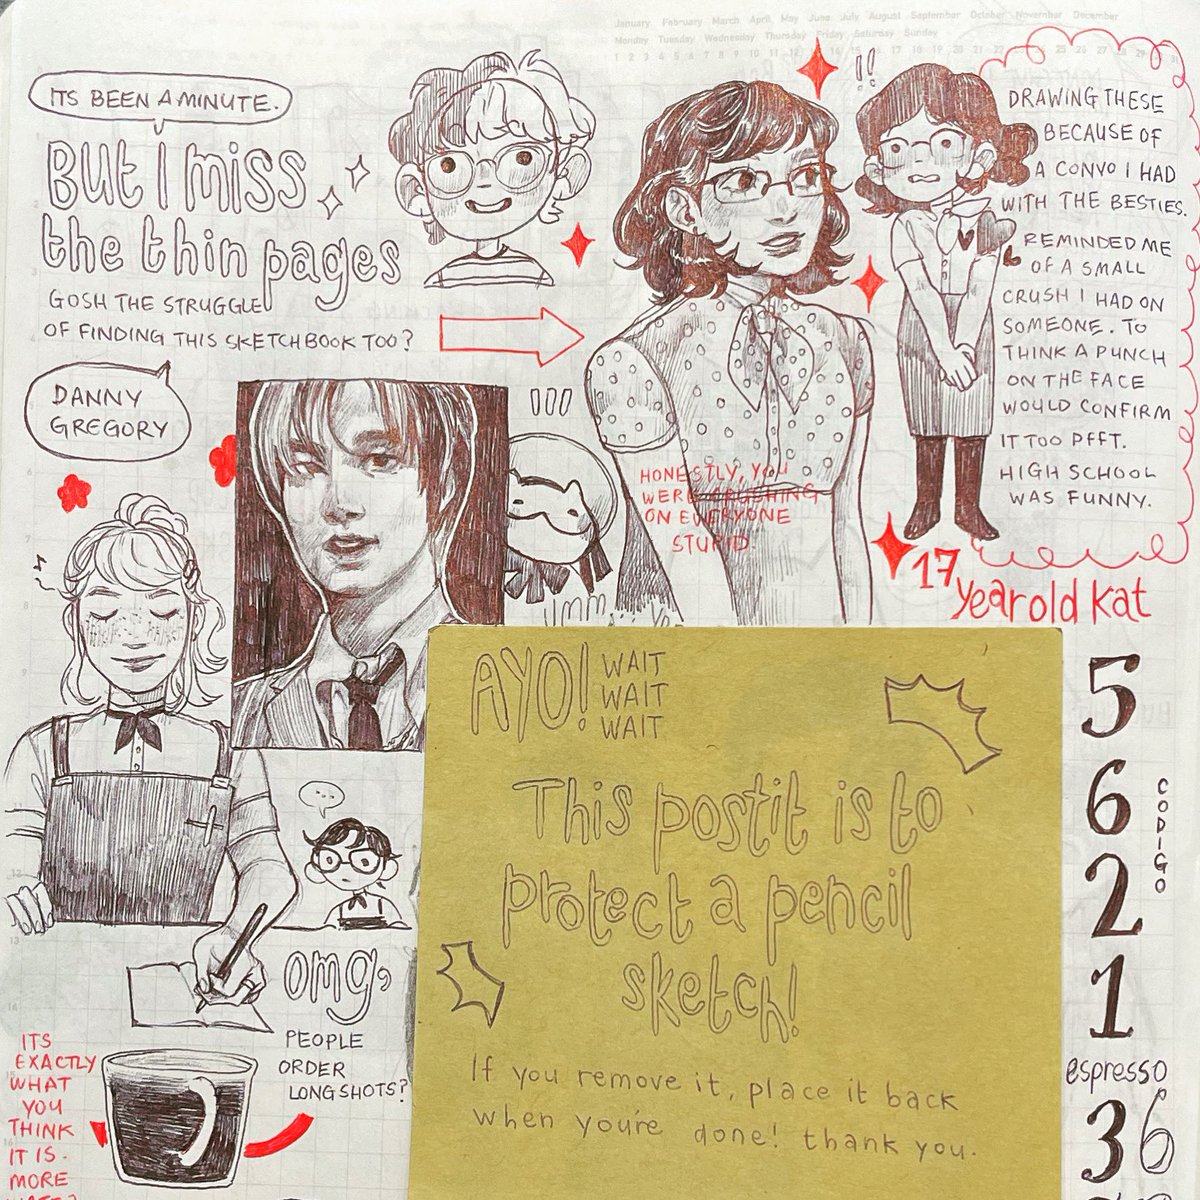 January February March April May June July August September October November December
Monday Tuesday Wednesday Thursday Friday Saturday Sunday
ITS BEEN A MINUTE.
But I miss
the thin pages
GOSH THE STRUGGLE
OF FINDING THIS SKETCHBOOK TOO?
DANNY
GREGORY
!!
DRAWING THESE
BECAUSE OF
A CONVO I HAD
WITH THE BESTIES.
REMINDED ME
OF A SMALL
CRUSH I HAD ON
SOMEONE. TO
THINK A PUNCH
ON THE FACE
WOULD CONFIRM
IT TOO PFFT.
HIGH SCHOOL
WAS FUNNY.
HONESTLY, YOU
WERE CRUSHING
ON EVERYONE
STUPID.
17
year old Kat
AYO! WAIT
WAIT
WAIT
This postit is to
protect a pencil
sketch!
If you remove it, place it back
when you're done! thank you.
...
omg,
PEOPLE
ORDER
LONG SHOTS?
ITS
EXACTLY
WHAT
YOU
THINK
IT IS.
MORE
5
6
2
1
CODIGO
espresso
36